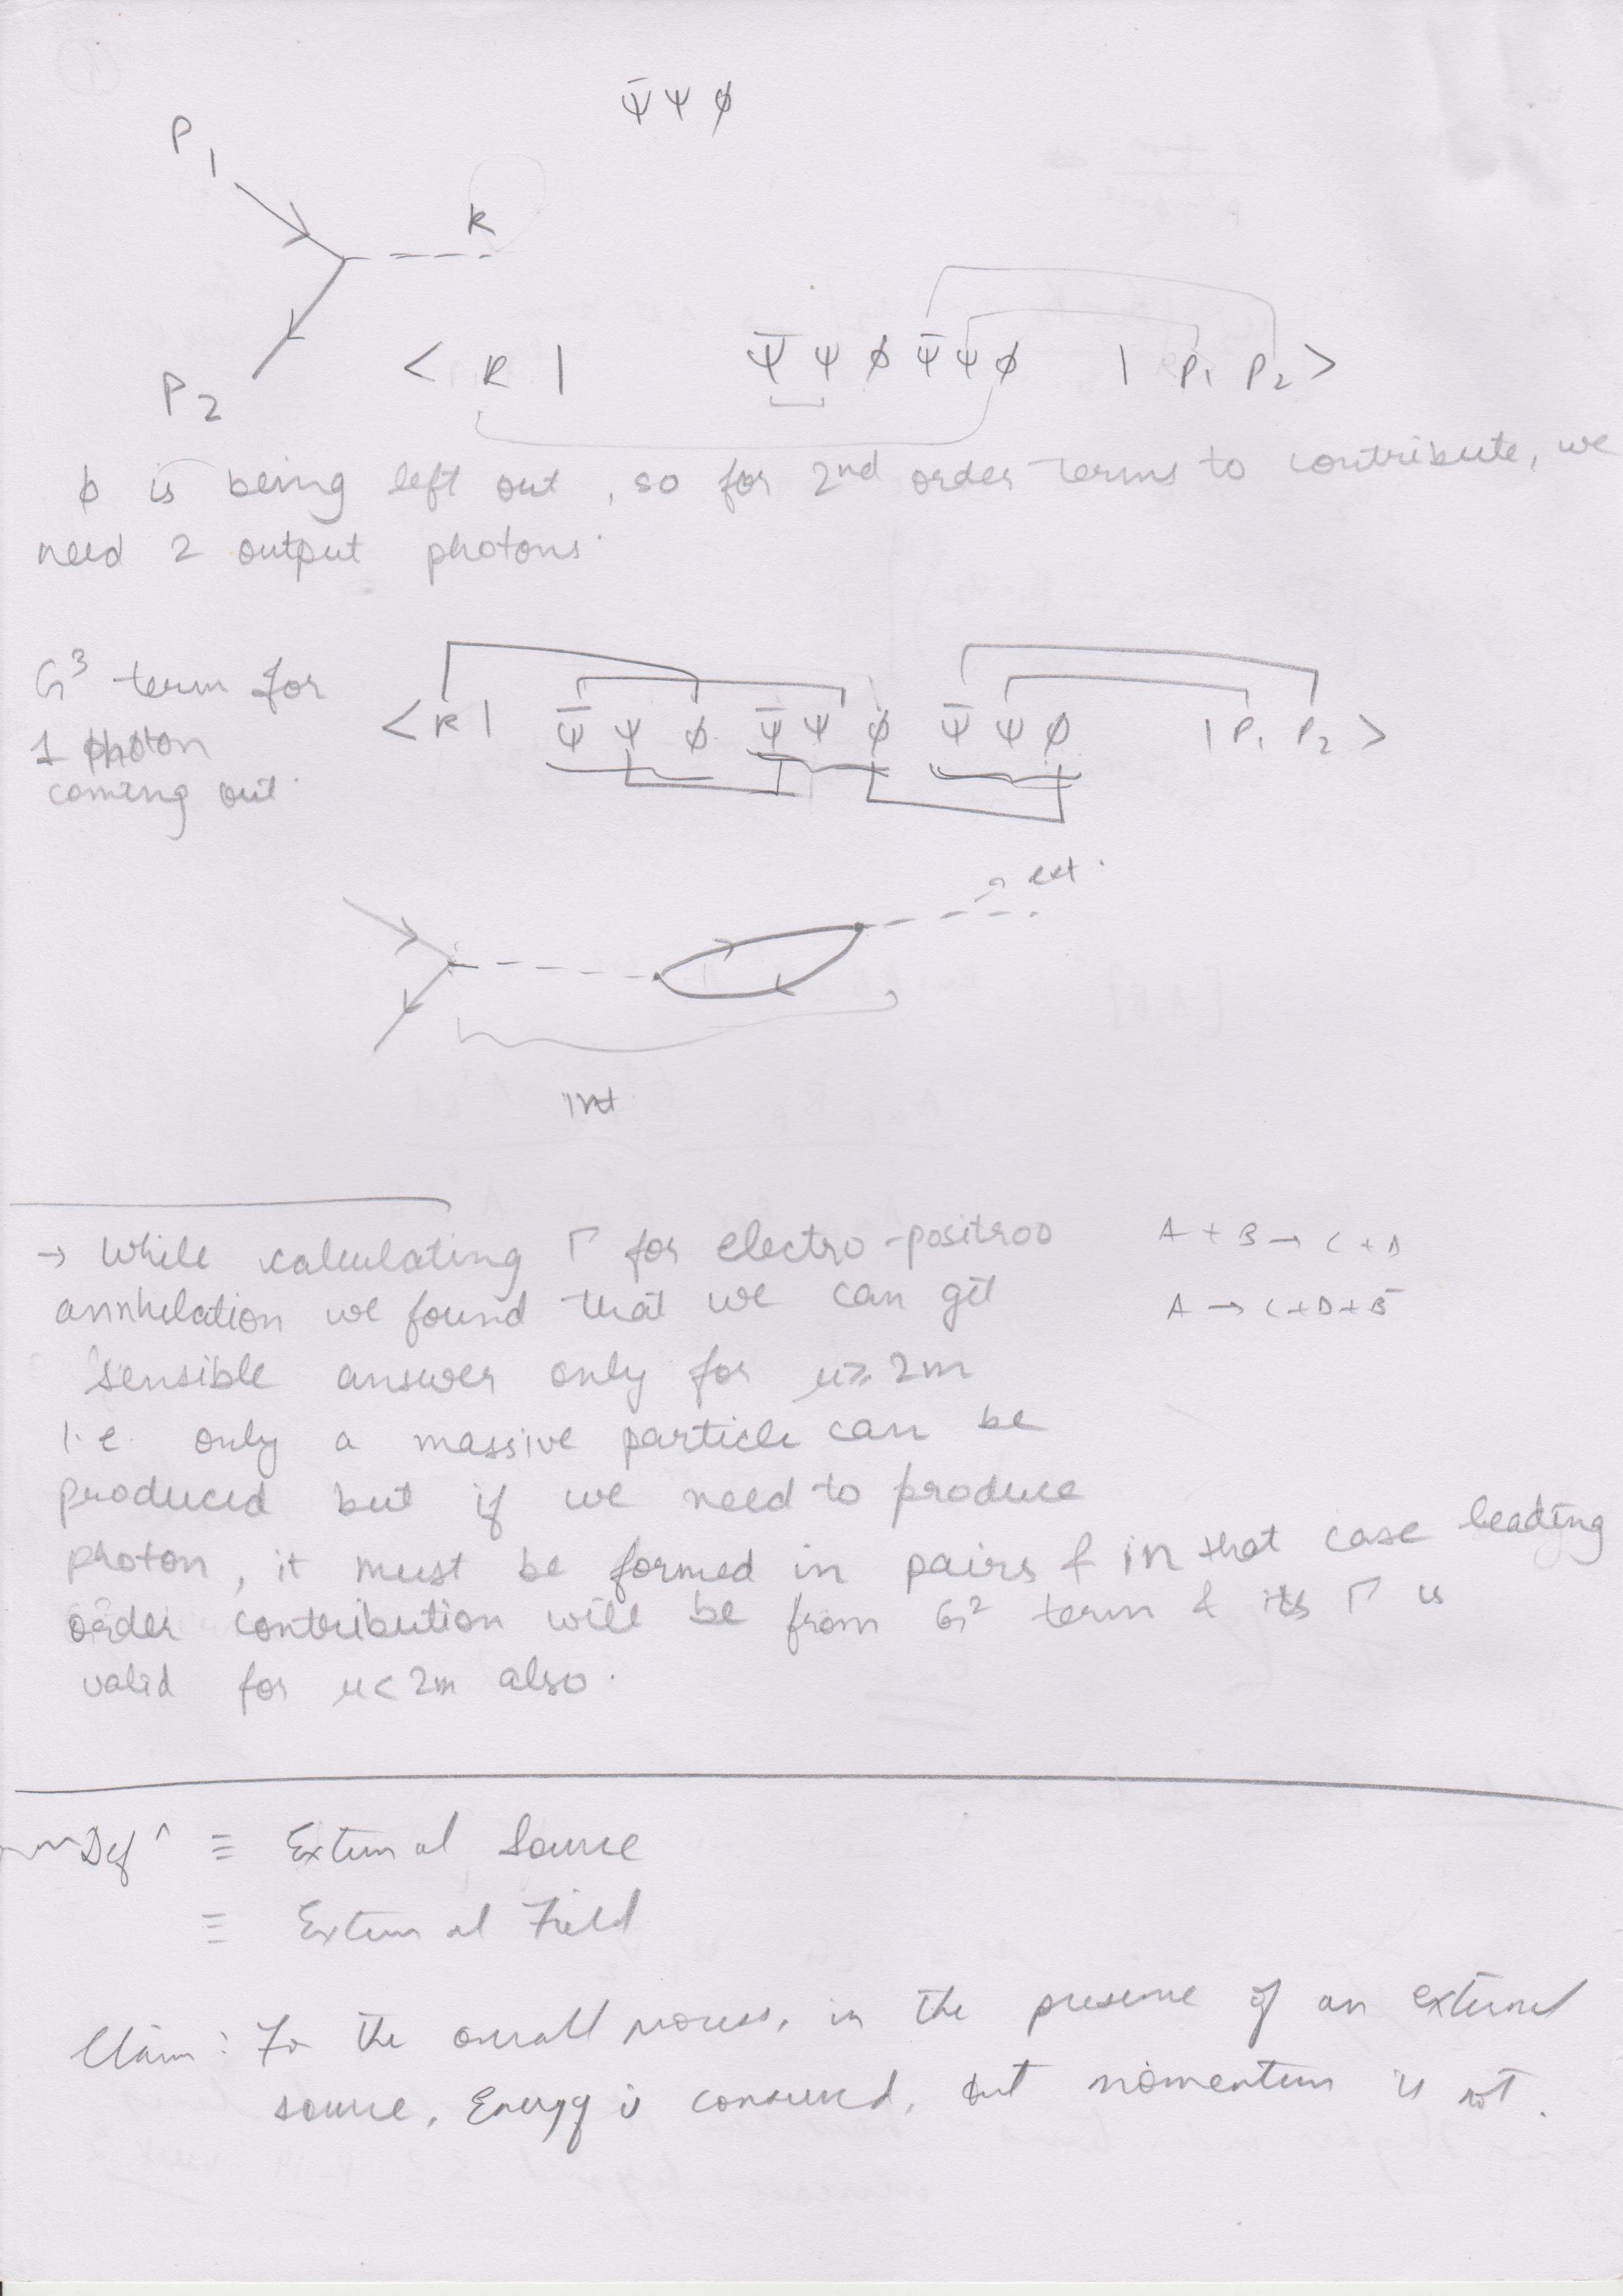 ψ̄ ψ ϕ
P₁
k
P₂
< k | ψ̄ ψ ϕ ψ̄ ψ ϕ | P₁ P₂ >
ϕ is being left out, so for 2nd order terms to contribute, we
need 2 output photons.
G³ term for
1 photon
coming out.
< k | ψ̄ ψ ϕ ψ̄ ψ ϕ ψ̄ ψ ϕ | P₁ P₂ >
ext.
int.
→ While calculating Γ for electro-positroo
annhelation we found that we can get
sensible answer only for μ ≥ 2m
i.e. only a massive particle can be
produced but if we need to produce
photon, it must be formed in pairs & in that case leading
order contribution will be from G² term & its Γ is
valid for μ < 2m also.
A + B → C + D
A → C + D + B̄
Defⁿ ≡ External Source
≡ External Field
Claim: For the overall process, in the presence of an external
source, Energy is conserved, but momentum is not.